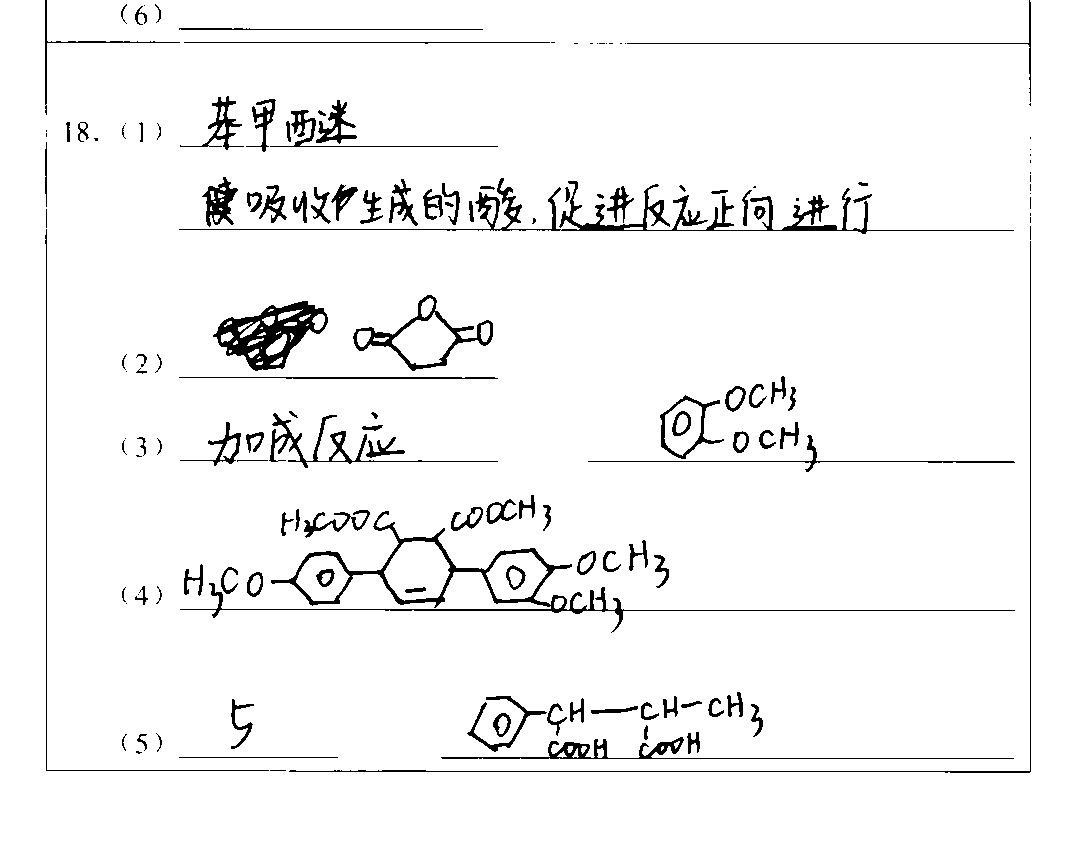 (6)
18. (1) 苯甲西迷
吸收生成的酸，促进反应正向进行
(2) O O O
(3) 加成反应 OCH3 OCH3
H3COOC COOCH3
(4) H3CO OCH3 OCH3
(5) 5 CH—CH—CH3
COOH COOH